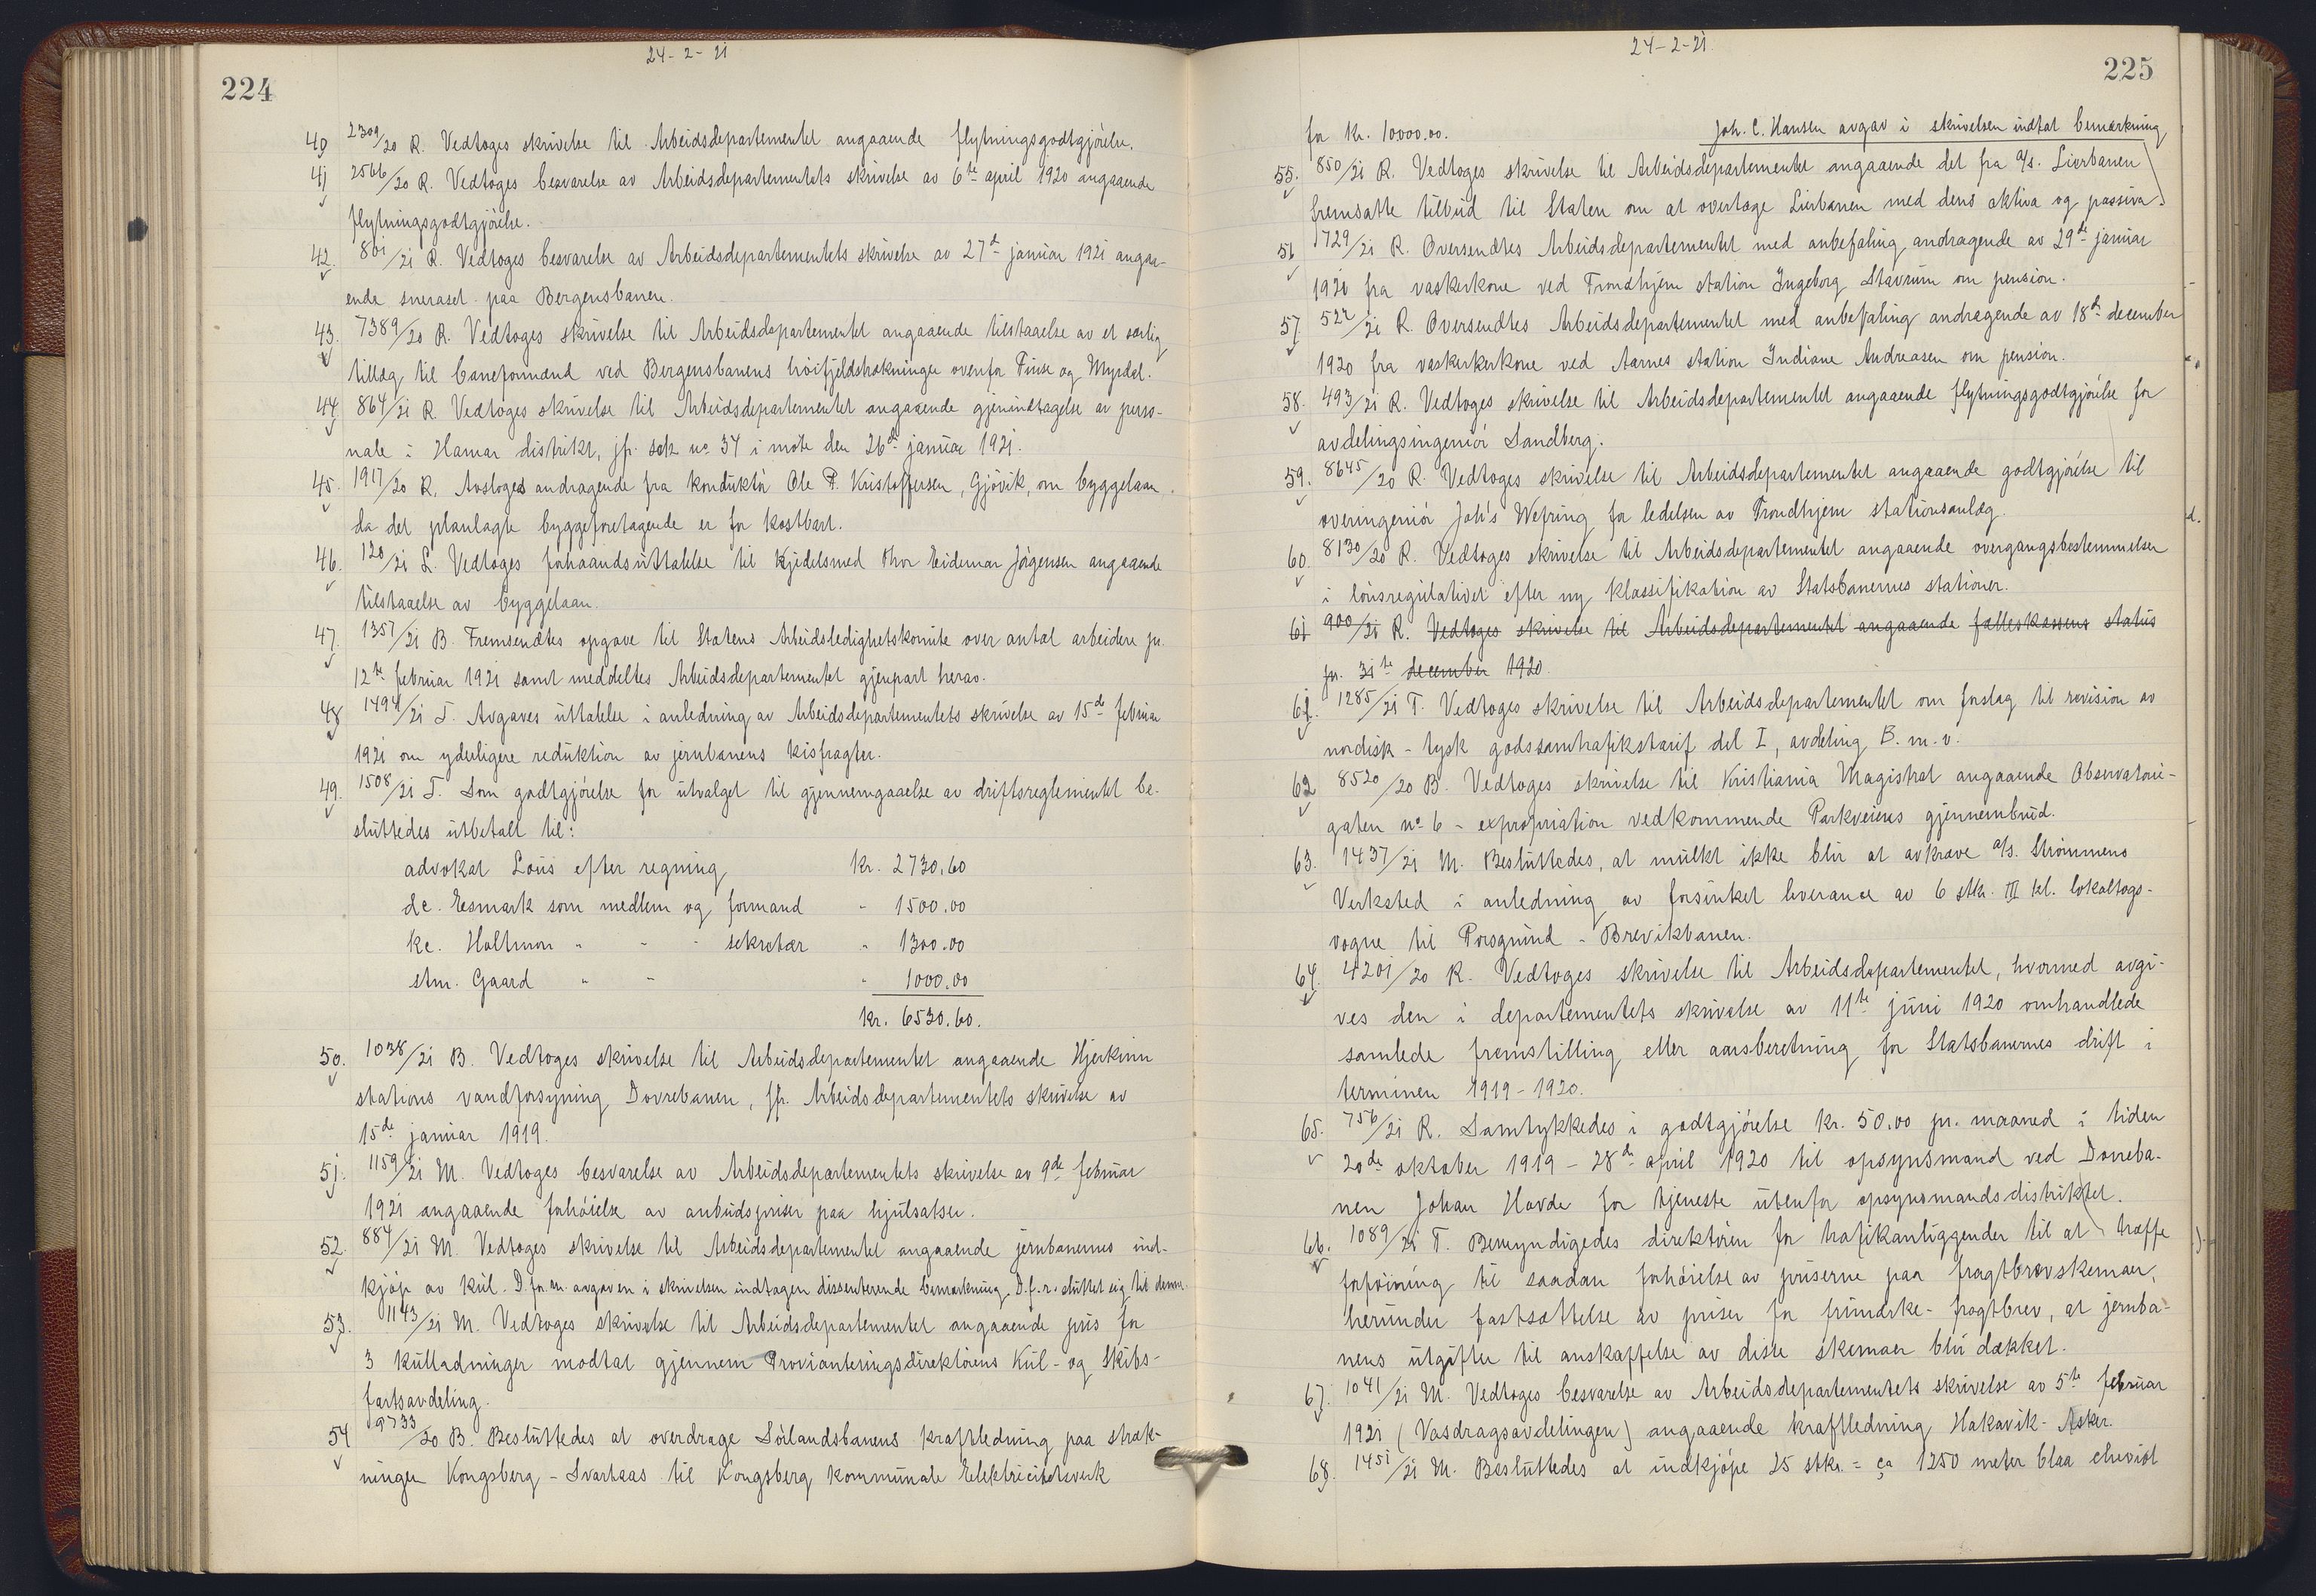 24-2-21
224
40 2309/20 R. Vedtoges skrivelse til Arbeidsdepartementet angaaende flytningsgodtgjørelse.
41 2566/20 R. Vedtoges besvarelse av Arbeidsdepartementets skrivelse av 6te april 1920 angaaende
flytningsgodtgjørelse.
42. 801/21 R. Vedtoges besvarelse av Arbeidsdepartementets skrivelse av 27de januar 1921 angaa-
ende sneraset paa Bergensbanen.
43. 7389/20 R. Vedtoges skrivelse til Arbeidsdepartementet angaaende tilstaaelse av et særlig
tillæg til baneformænd ved Bergensbanens høifjeldstrækninger ovenfor Finse og Myrdal.
44 864/21 R. Vedtoges skrivelse til Arbeidsdepartementet angaaende gjenindtagelse av perso-
nale i Hamar distrikt, jfr. sak no 34 i møte den 26de januar 1921.
45. 1917/20 R. Avsloges andragende fra konduktør Ole P. Kristoffersen, Gjøvik, om byggelaan
da det planlagte byggeforetagende er for kostbart.
46. 120/21 L. Vedtoges forhaandsuttalelse til kjedelsmed Thor Eidemar Jørgensen angaaende
tilstaaelse av byggelaan.
47. 1357/21 B. Fremsendtes opgave til Statens Arbeidsledighetskomite over antal arbeidere pr.
12te februar 1921 samt meddeltes Arbeidsdepartementet gjenpart herav.
48 1494/21 T. Avgaves uttalelse i anledning av Arbeidsdepartementets skrivelse av 15de februar
1921 om yderligere reduktion av jernbanens kisfragter.
49. 1508/21 T. Som godtgjørelse for utvalget til gjennemgaaelse av driftsreglementet be-
sluttedes utbetalt til:
advokat Lous efter regning kr. 2730.60
dc. Eesmark som medlem og formand - 1500.00
kc. Holtmon - - - sekretær - 1300.00
stm. Gaard - - - 1000.00
kr. 6530.60.
50. 1038/21 B. Vedtoges skrivelse til Arbeidsdepartementet angaaende Hjerkinn
stations vandforsyning, Dovrebanen, jfr. Arbeidsdepartementets skrivelse av
15de januar 1919.
51. 1159/21 M. Vedtoges besvarelse av Arbeidsdepartementets skrivelse av 9de februar
1921 angaaende forhøielse av anbudspriser paa hjulsatser.
52. 884/21 M. Vedtoges skrivelse til Arbeidsdepartementet angaaende jernbanernes ind-
kjøp av kul. D. for m. avgav en i skrivelsen indtagen dissenterende bemerkning. D. f. r. sluttet sig til denne.
53. 1143/21 M. Vedtoges skrivelse til Arbeidsdepartementet angaaende pris for
3 kulladninger mottat gjennem Provianteringsdirektørens Kul- og Skibs-
fartsavdeling.
54 9733/20 B. Besluttedes at overdrage Sørlandsbanens kraftledning paa stræk-
ningen Kongsberg - Svartaas til Kongsberg kommunale Elektricitetsverk
24-2-21.
225
for kr. 10.000.00. Joh. C. Hansen avgav i skrivelsen indtat bemerkning
55. 850/21 R. Vedtoges skrivelse til Arbeidsdepartementet angaaende det fra a/s. Lierbanen
fremsatte tilbud til Staten om at overtage Lierbanen med dens aktiva og passiva.
56 1729/21 R. Oversendtes Arbeidsdepartementet med anbefaling andragende av 29de januar
1921 fra vaskerkone ved Trondhjem station Ingeborg Stavrum om pension.
57 527/21 R. Oversendtes Arbeidsdepartementet med anbefaling andragende av 18de december
1920 fra vaskerkerkone ved Aarnes station Indiane Andreasen om pension.
58. 493/21 R. Vedtoges skrivelse til Arbeidsdepartementet angaaende flytningsgodtgjørelse for
avdelingsingeniør Sandberg.
59. 8645/20 R. Vedtoges skrivelse til Arbeidsdepartementet angaaende godtgjørelse til
overingeniør Joh's Wefring for ledelsen av Trondhjem stationsanlæg.
60. 8130/20 R. Vedtoges skrivelse til Arbeidsdepartementet angaaende overgangsbestemmelser
i lønsregulativet efter ny klassifikation av Statsbanernes stationer.
61 900/21 R. Vedtoges skrivelse til Arbeidsdepartementet angaaende fælleskassens status
pr. 31te december 1920.
61. 1285/21 T. Vedtoges skrivelse til Arbeidsdepartementet om forslag til revision av
nordisk - tysk godssamtrafiktarif del I, avdeling B. m. v.
62 8520/20 B. Vedtoges skrivelse til Kristiania Magistrat angaaende Observatorie-
gaten no 6 - expropriation vedkommende Parkveiens gjennembrud.
63. 1437/21 M. Besluttedes, at mulkt ikke blir at avkræve a/s. Strømmens
Verksted i anledning av forsinket leveranse av 6 stk. III kl. lokaltogs-
vogne til Porsgrund - Brevikbanen.
64. 4201/20 R. Vedtoges skrivelse til Arbeidsdepartementet, hvormed avgi-
ves den i departementets skrivelse av 11te juni 1920 omhandlede
samlede fremstilling eller aarsberetning for Statsbanernes drift i
terminen 1919-1920.
65. 756/21 R. Samtykkedes i godtgjørelse kr. 50.00 pr. maaned i tiden
20de oktober 1919 - 28de april 1920 til opsynsmand ved Dovreba-
nen Johan Hovde for tjeneste utenfor opsynsmandsdistriktet.
66. 1089/21 T. Bemyndigedes direktøren for trafikanliggender til at træffe
forføining til saadan forhøielse av priserne paa fragtbrevskemaer,
herunder fastsættelse av priser for frimerke-fragtbrev, at jernba-
nens utgifter til anskaffelse av disse skemaer blir dækket.
67. 1041/21 M. Vedtoges besvarelse av Arbeidsdepartementets skrivelse av 5te februar
1921 (Vasdragsavdelingen) angaaende kraftledning Hakavik - Asker.
68. 1451/21 M. Besluttedes at indkjøpe 25 stkr. = ca 1250 meter blaa cheviot